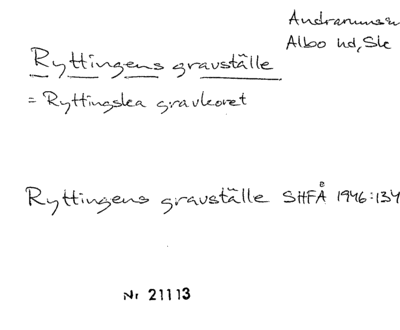 Andrarums sn
Albo hd, Sk
Ryttingens gravställe
= Ryttingska gravkoret
Ryttingens gravställe SHFÅ 1946:134
Nr 21113